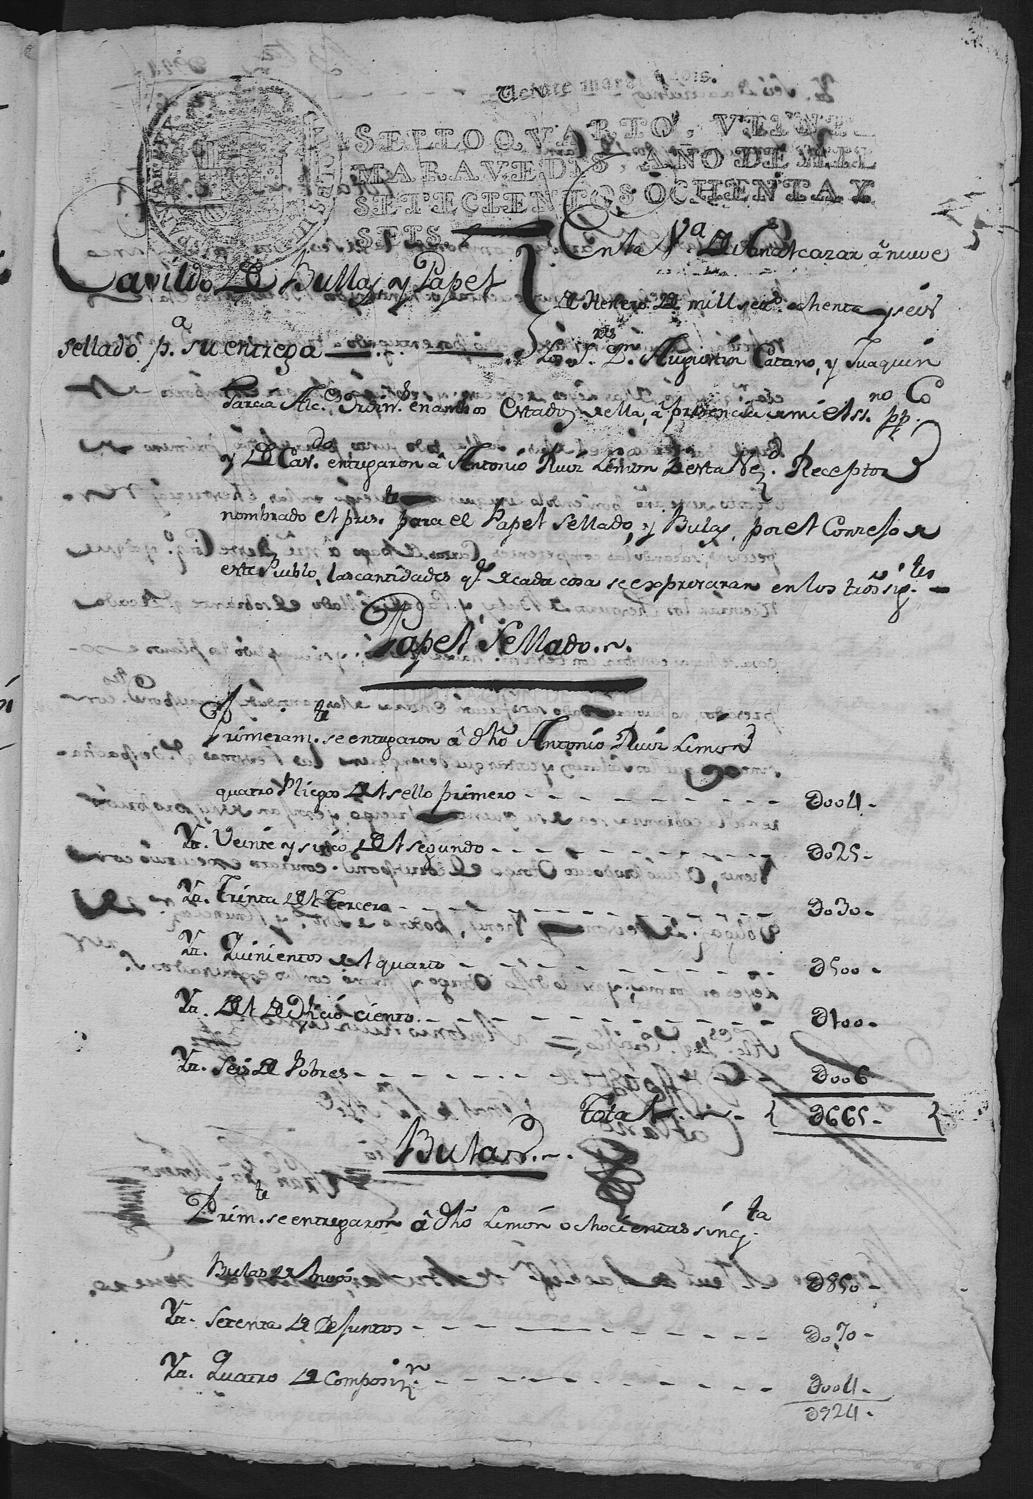 Veinte mara
SELLO QVARTO, VEINTE
MARAVEDIS, AÑO DE MIL
SETECIENTOS OCHENTA Y
SEIS.
Cavildo de Bullas y Papel
sellado pª. su entrega
En la Vª de Benalcazar â nueve
de Henero de mill setº ochenta y seis
Los Sres Dn. Augustin Catano, y Juaquin
Garcia Alc.s Ordin.s en ambos Estados de ella, a presencia de mi el Ssno. ppco.
y de Cavdo. entregaron â Antonio Ruiz Limon de esta Vezd. Receptor
nombrado el preste. para el Papel Sellado, y Bulas, por el Consejo de
este Pueblo, las cantidades qe. de cada cosa se expresaran en los siguientes
Papel Sellado.
Primeramte. se entregaron â dhô Antonio Ruiz Limon
quatro Pliegos del sello primero - - - - - - Ð004-
Yt. Veinte y sinco del segundo - - - - - - Ð025-
Yt. Trinta del Tercero - - - - - - Ð030-
Yt. Quinientos del quarto - - - - - - Ð500-
Yt. Del de oficio ciento - - - - - - Ð100-
Yt. Seis de Pobres - - - - - - Ð006
Total - Ð665-
Bulas.
Primte. se entregaron â dhô Limón ochocientas sinqta
Bulas de Vivos Ð850-
Yt. Setenta de Defuntos - - - - - - Ð070-
Yt. Quatro de Composin. - - - - - - Ð004-
Ð924-